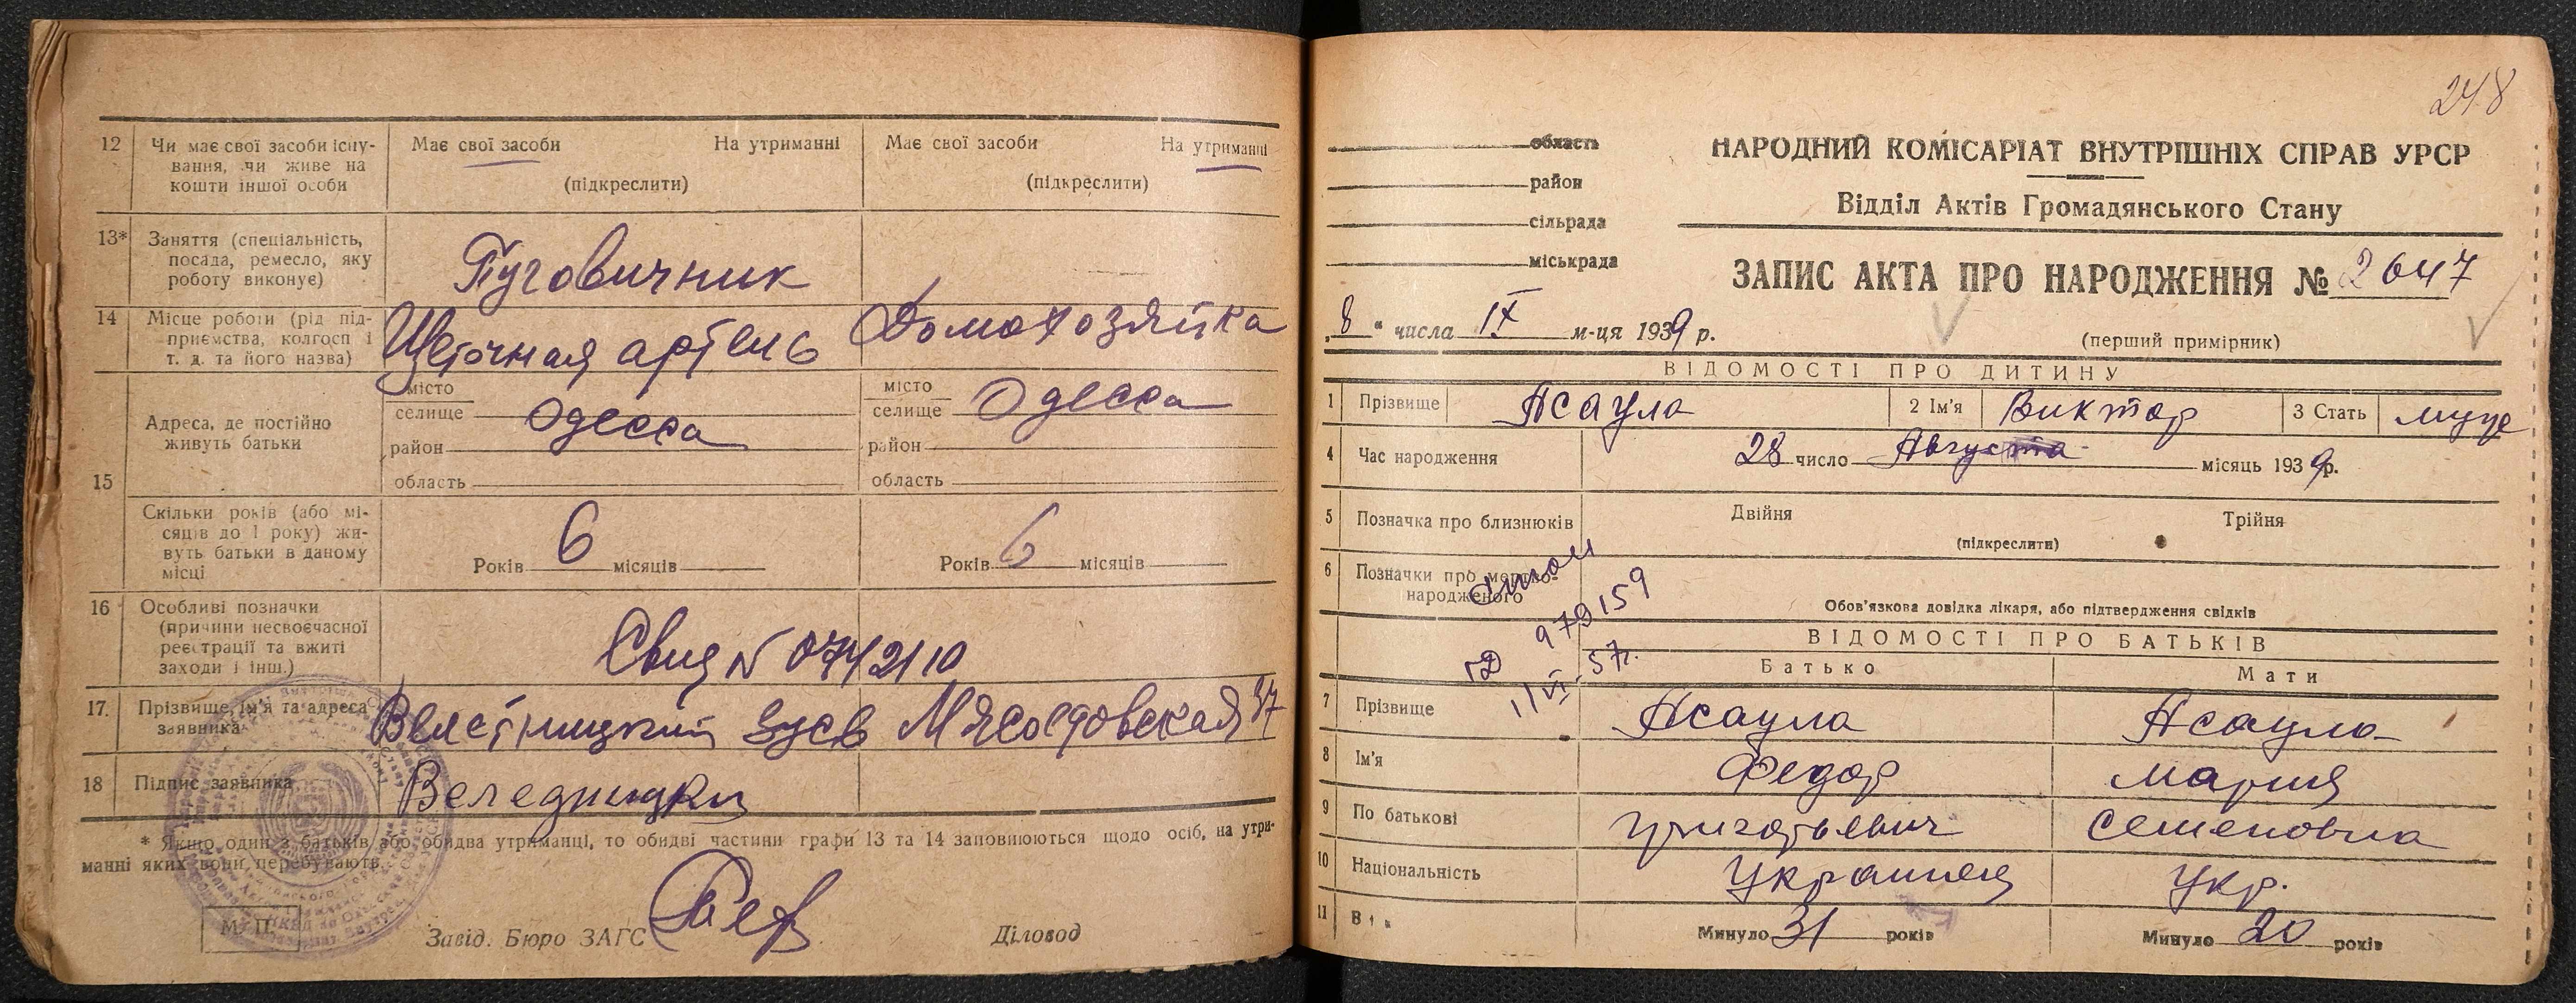 12 Чи має свої засоби існу-
вання, чи живе на
кошти іншої особи
Має свої засоби На утриманні
(підкреслити)
Має свої засоби На утриманні
(підкреслити)
13* Заняття (спеціальність,
посада, ремесло, яку
роботу виконує)
Пуговичник
14 Місце роботи (рід під-
приємства, колгосп і
т. д. та його назва)
Щеточная артель
Домохозяйка
15 Адреса, де постійно
живуть батьки
місто
селище Одесса
район
область
місто
селище Одесса
район
область
Скільки років (або мі-
сяців до 1 року) жи-
вуть батьки в даному
місці
Років 6 місяців
Років 6 місяців
16 Особливі позначки
(причини несвоєчасної
реєстрації та вжиті
заходи і інш.)
Свид N
17. Прізвище, ім'я та адреса
заявника
Мясоедовская 37
18 Підпис заявника
* Якщо один з батьків або обидва утриманці, то обидві частини графи 13 та 14 заповнюються щодо осіб, на утри-
манні яких вони перебувають.
М. П.
Завід. Бюро ЗАГС
Діловод
248
область
район
сільрада
міськрада
НАРОДНИЙ КОМІСАРІАТ ВНУТРІШНІХ СПРАВ УРСР
Відділ Актів Громадянського Стану
ЗАПИС АКТА ПРО НАРОДЖЕННЯ № 2647
„8“ числа IX м-ця 1939 р.
(перший примірник)
ВІДОМОСТІ ПРО ДИТИНУ
1 Прізвище Асаула 2 Ім'я Виктор 3 Стать муже
4 Час народження 28 число Августа місяць 1939 р.
5 Позначка про близнюків Двійня Трійня
(підкреслити)
6 Позначки про мертво-
народженого
Обов'язкова довідка лікаря, або підтвердження свідків
979159
11/VI-57г.
ВІДОМОСТІ ПРО БАТЬКІВ
Батько Мати
7 Прізвище Асаула Асаула
8 Ім'я Федор Мария
9 По батькові Григорьевич Семеновна
10 Національність Украинец Укр.
11 Вік Минуло 31 років Минуло 20 років